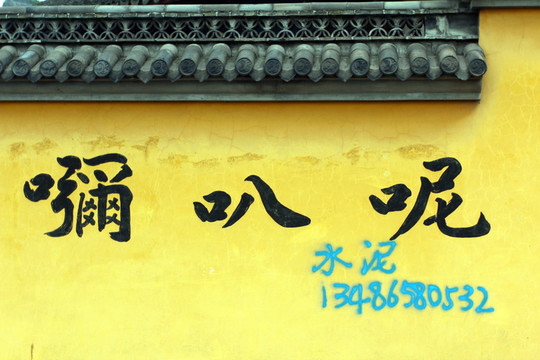 呢叭
水泥
13486580532